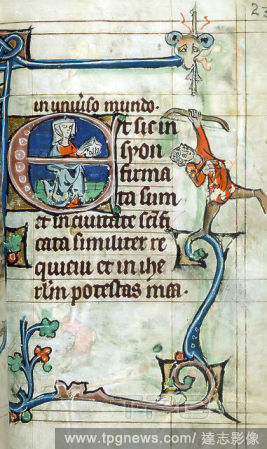 23
in univiso mundo.
Et sic in
syon
firma
ta sum
et in civitate scifi
cata similiter re
quievi et in ihe
rlm potestas mea.
www.tpgnews.com/ 達志影像